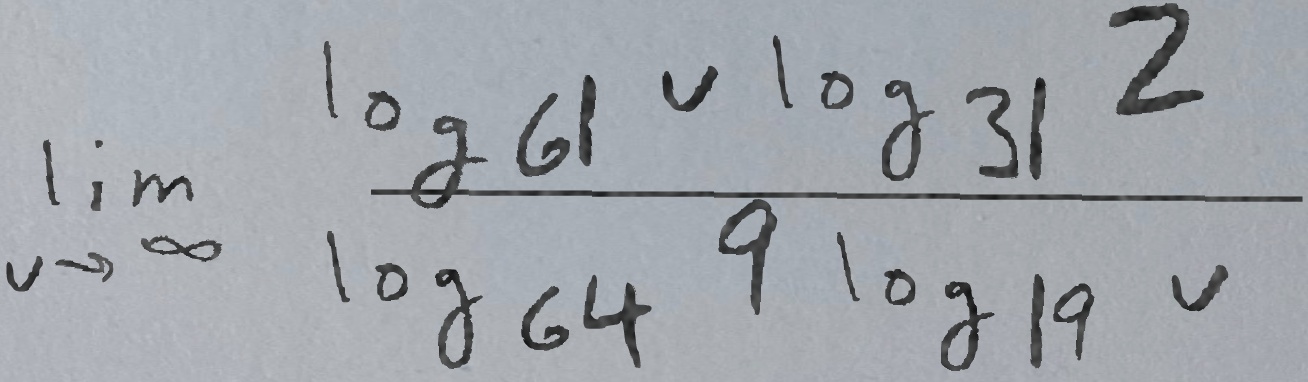 \lim_{v \to \infty} \frac{\log_{61} v \log_{31} 2}{\log_{64} 9 \log_{19} v}